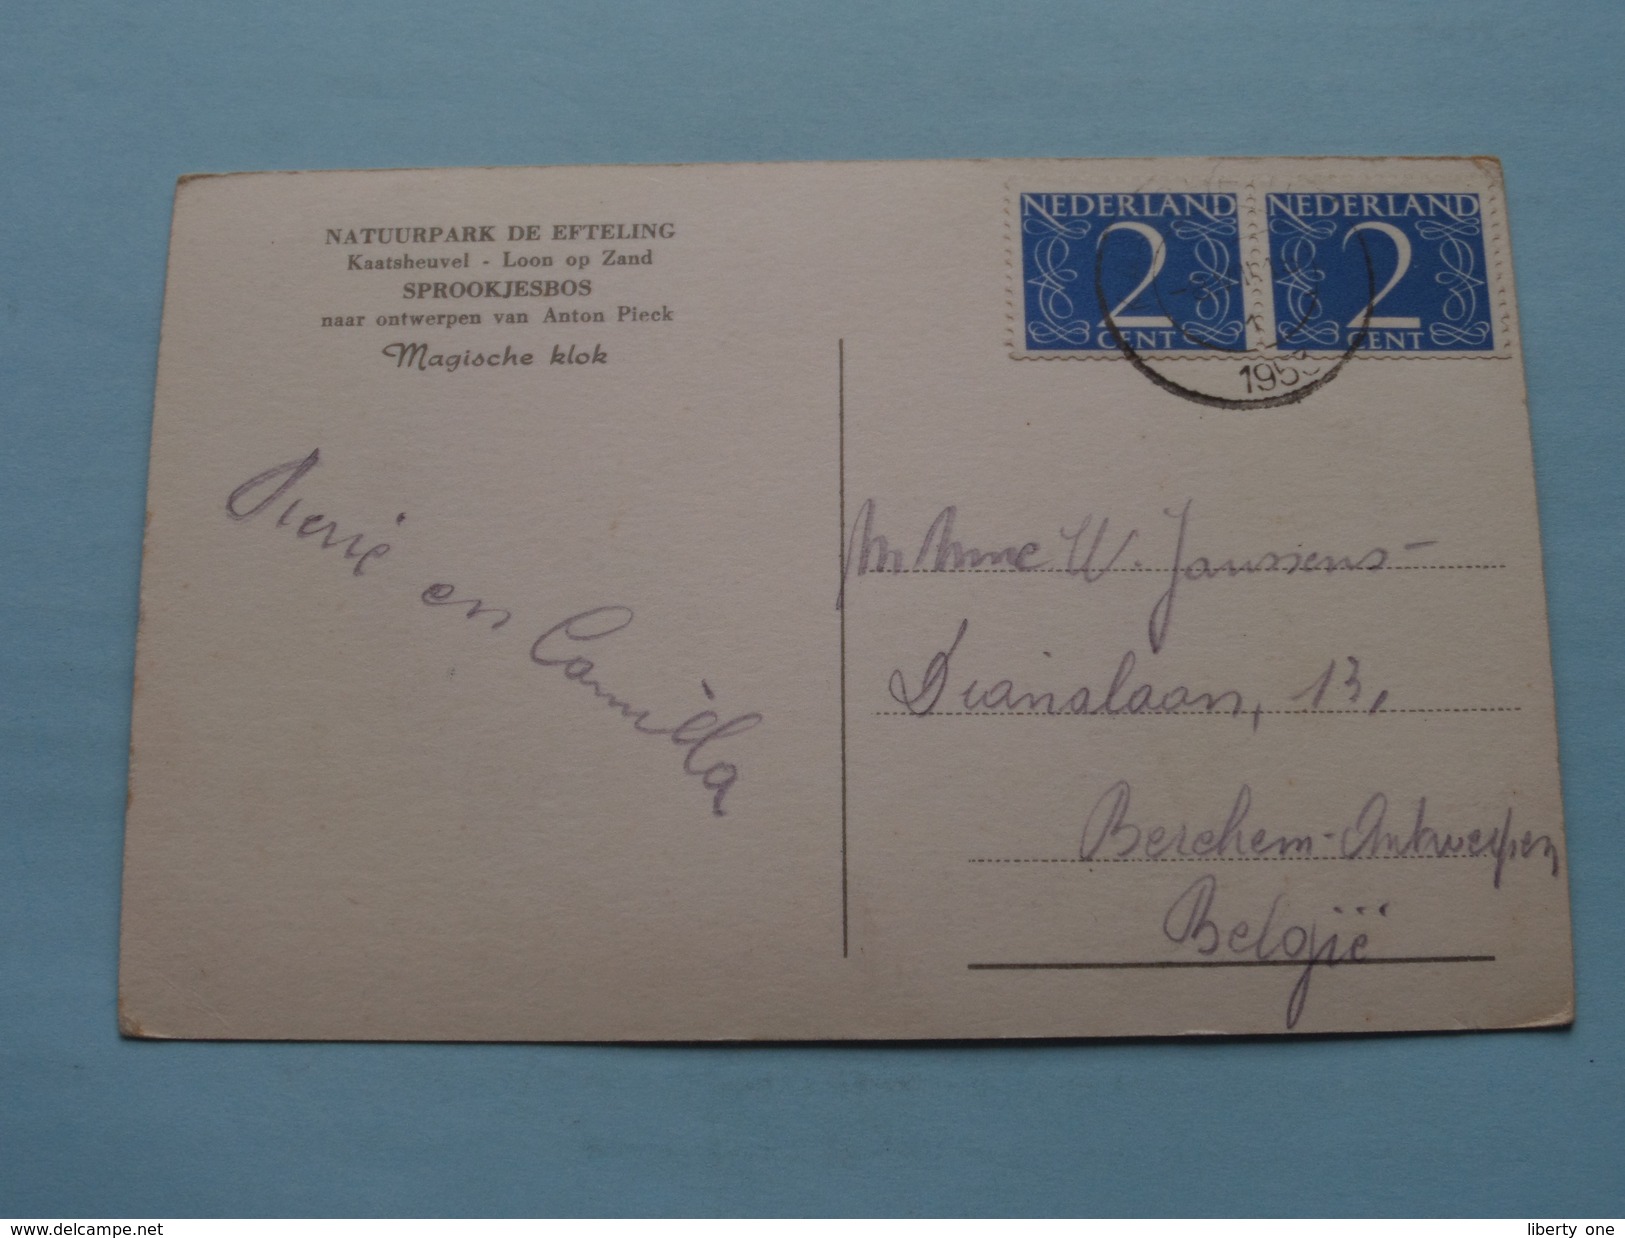 NATUURPARK DE EFTELING
Kaatsheuvel - Loon op Zand
SPROOKJESBOS
naar ontwerpen van Anton Pieck
Magische klok
en Camilla
NEDERLAND
2
CENT
NEDERLAND
2
CENT
Mme W. Janssens-
13,
Berchem-Antwerpen
België
www.delcampe.net
liberty_one